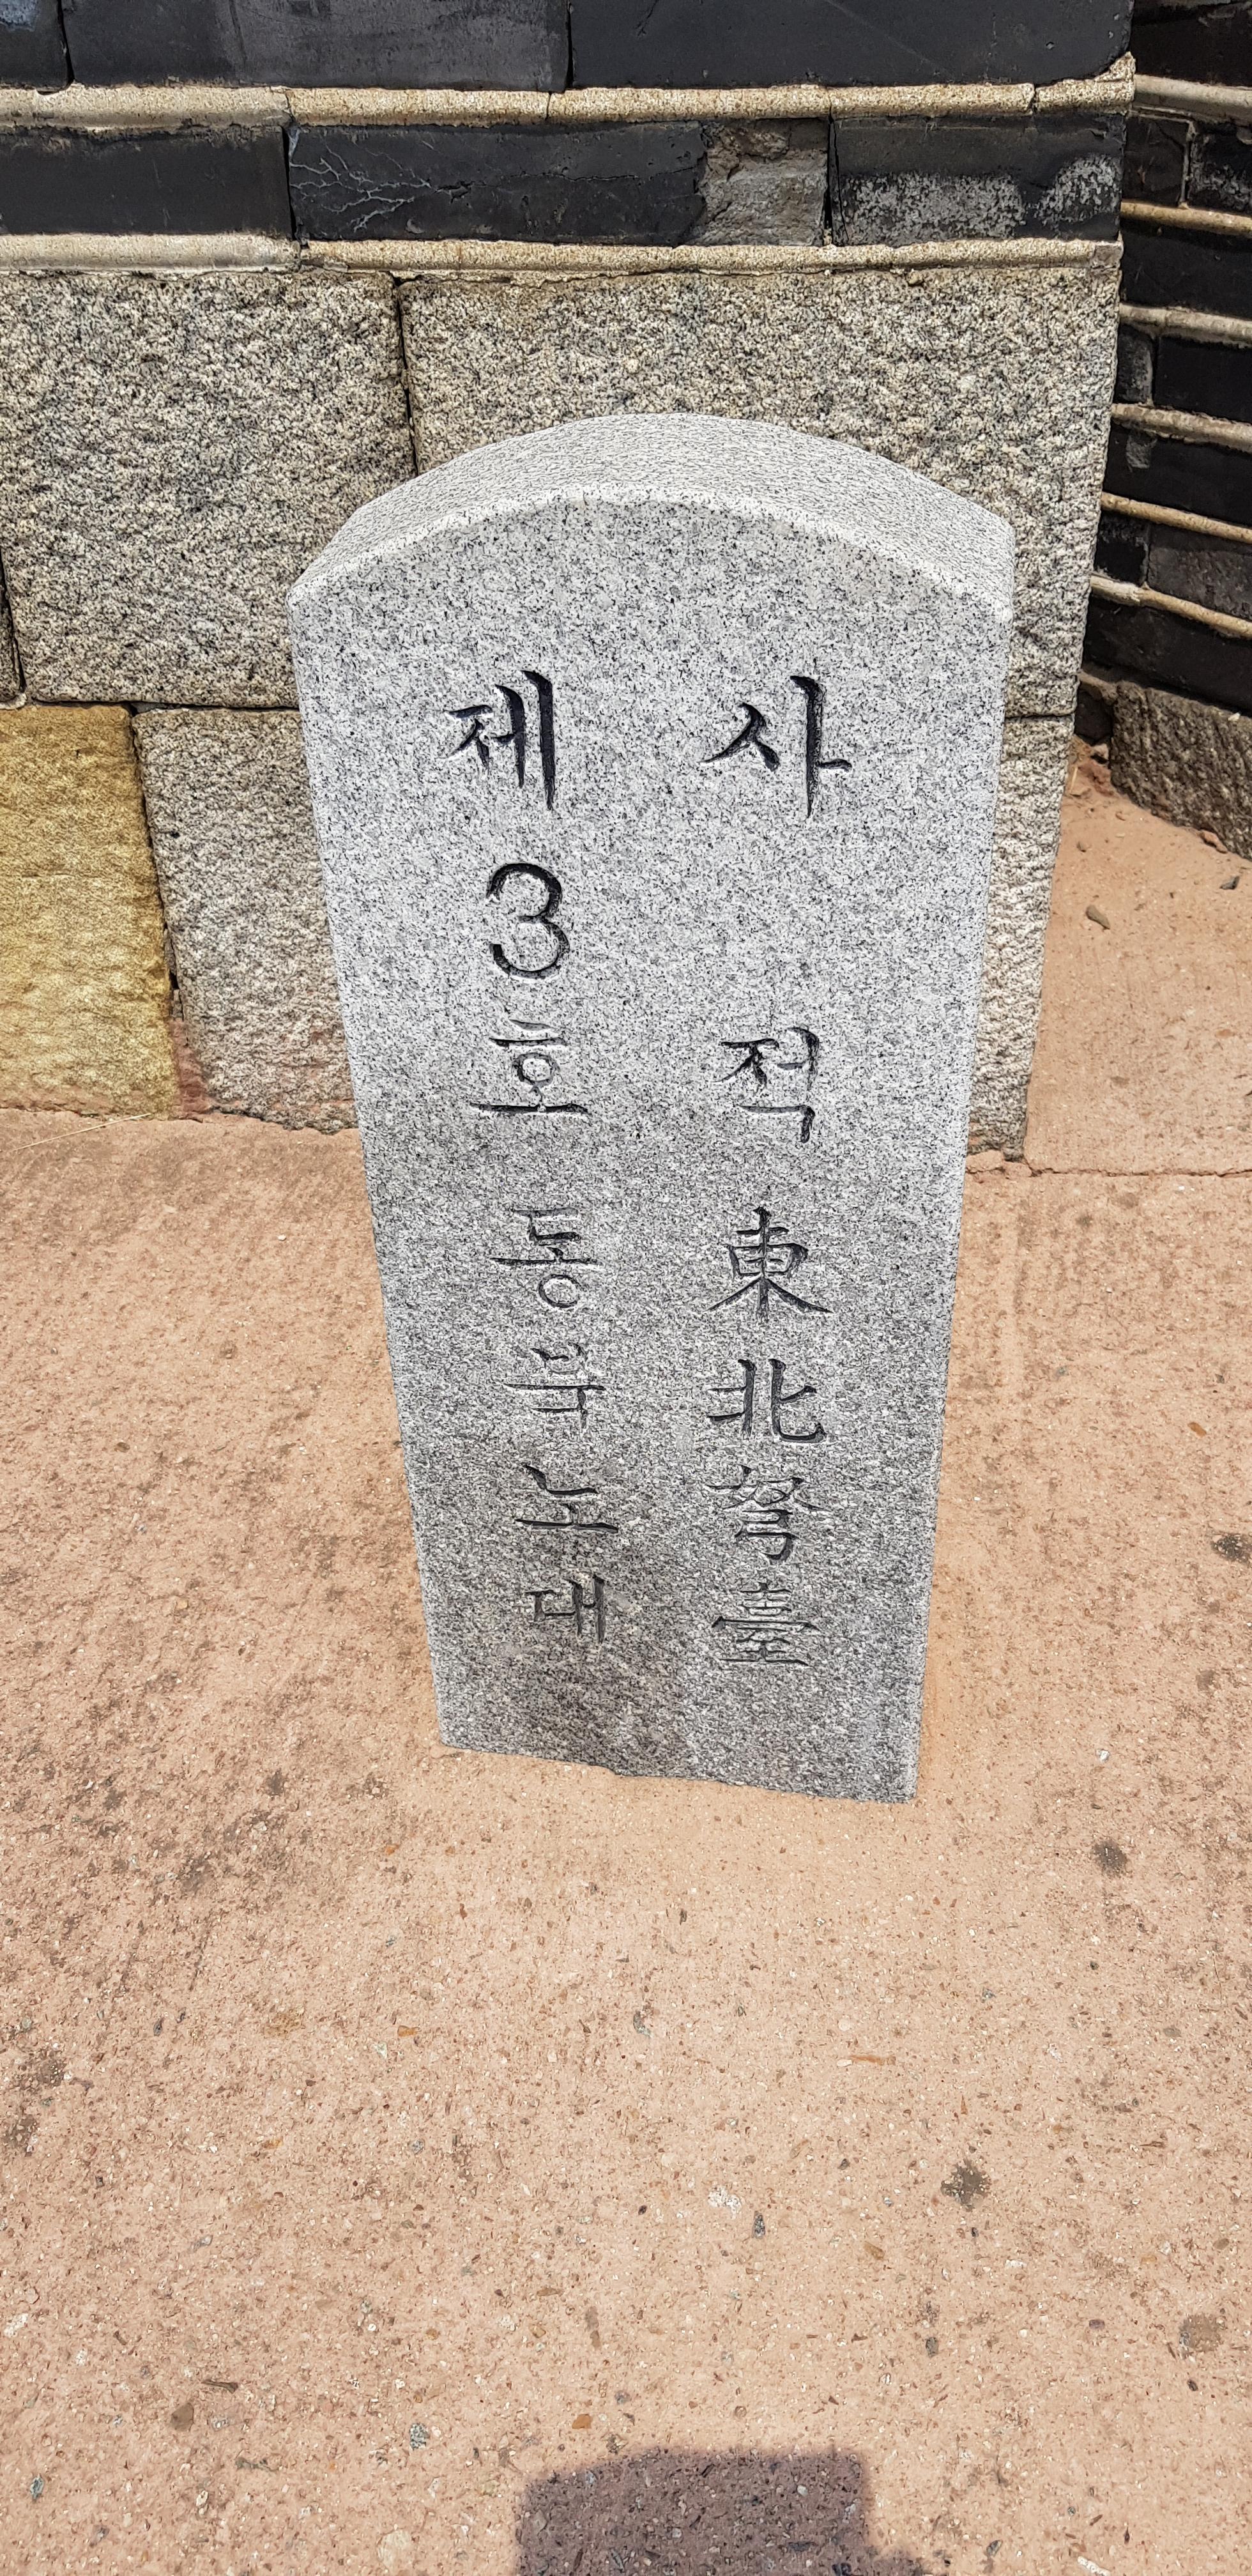 사적 東北弩臺
제3호 동북노대